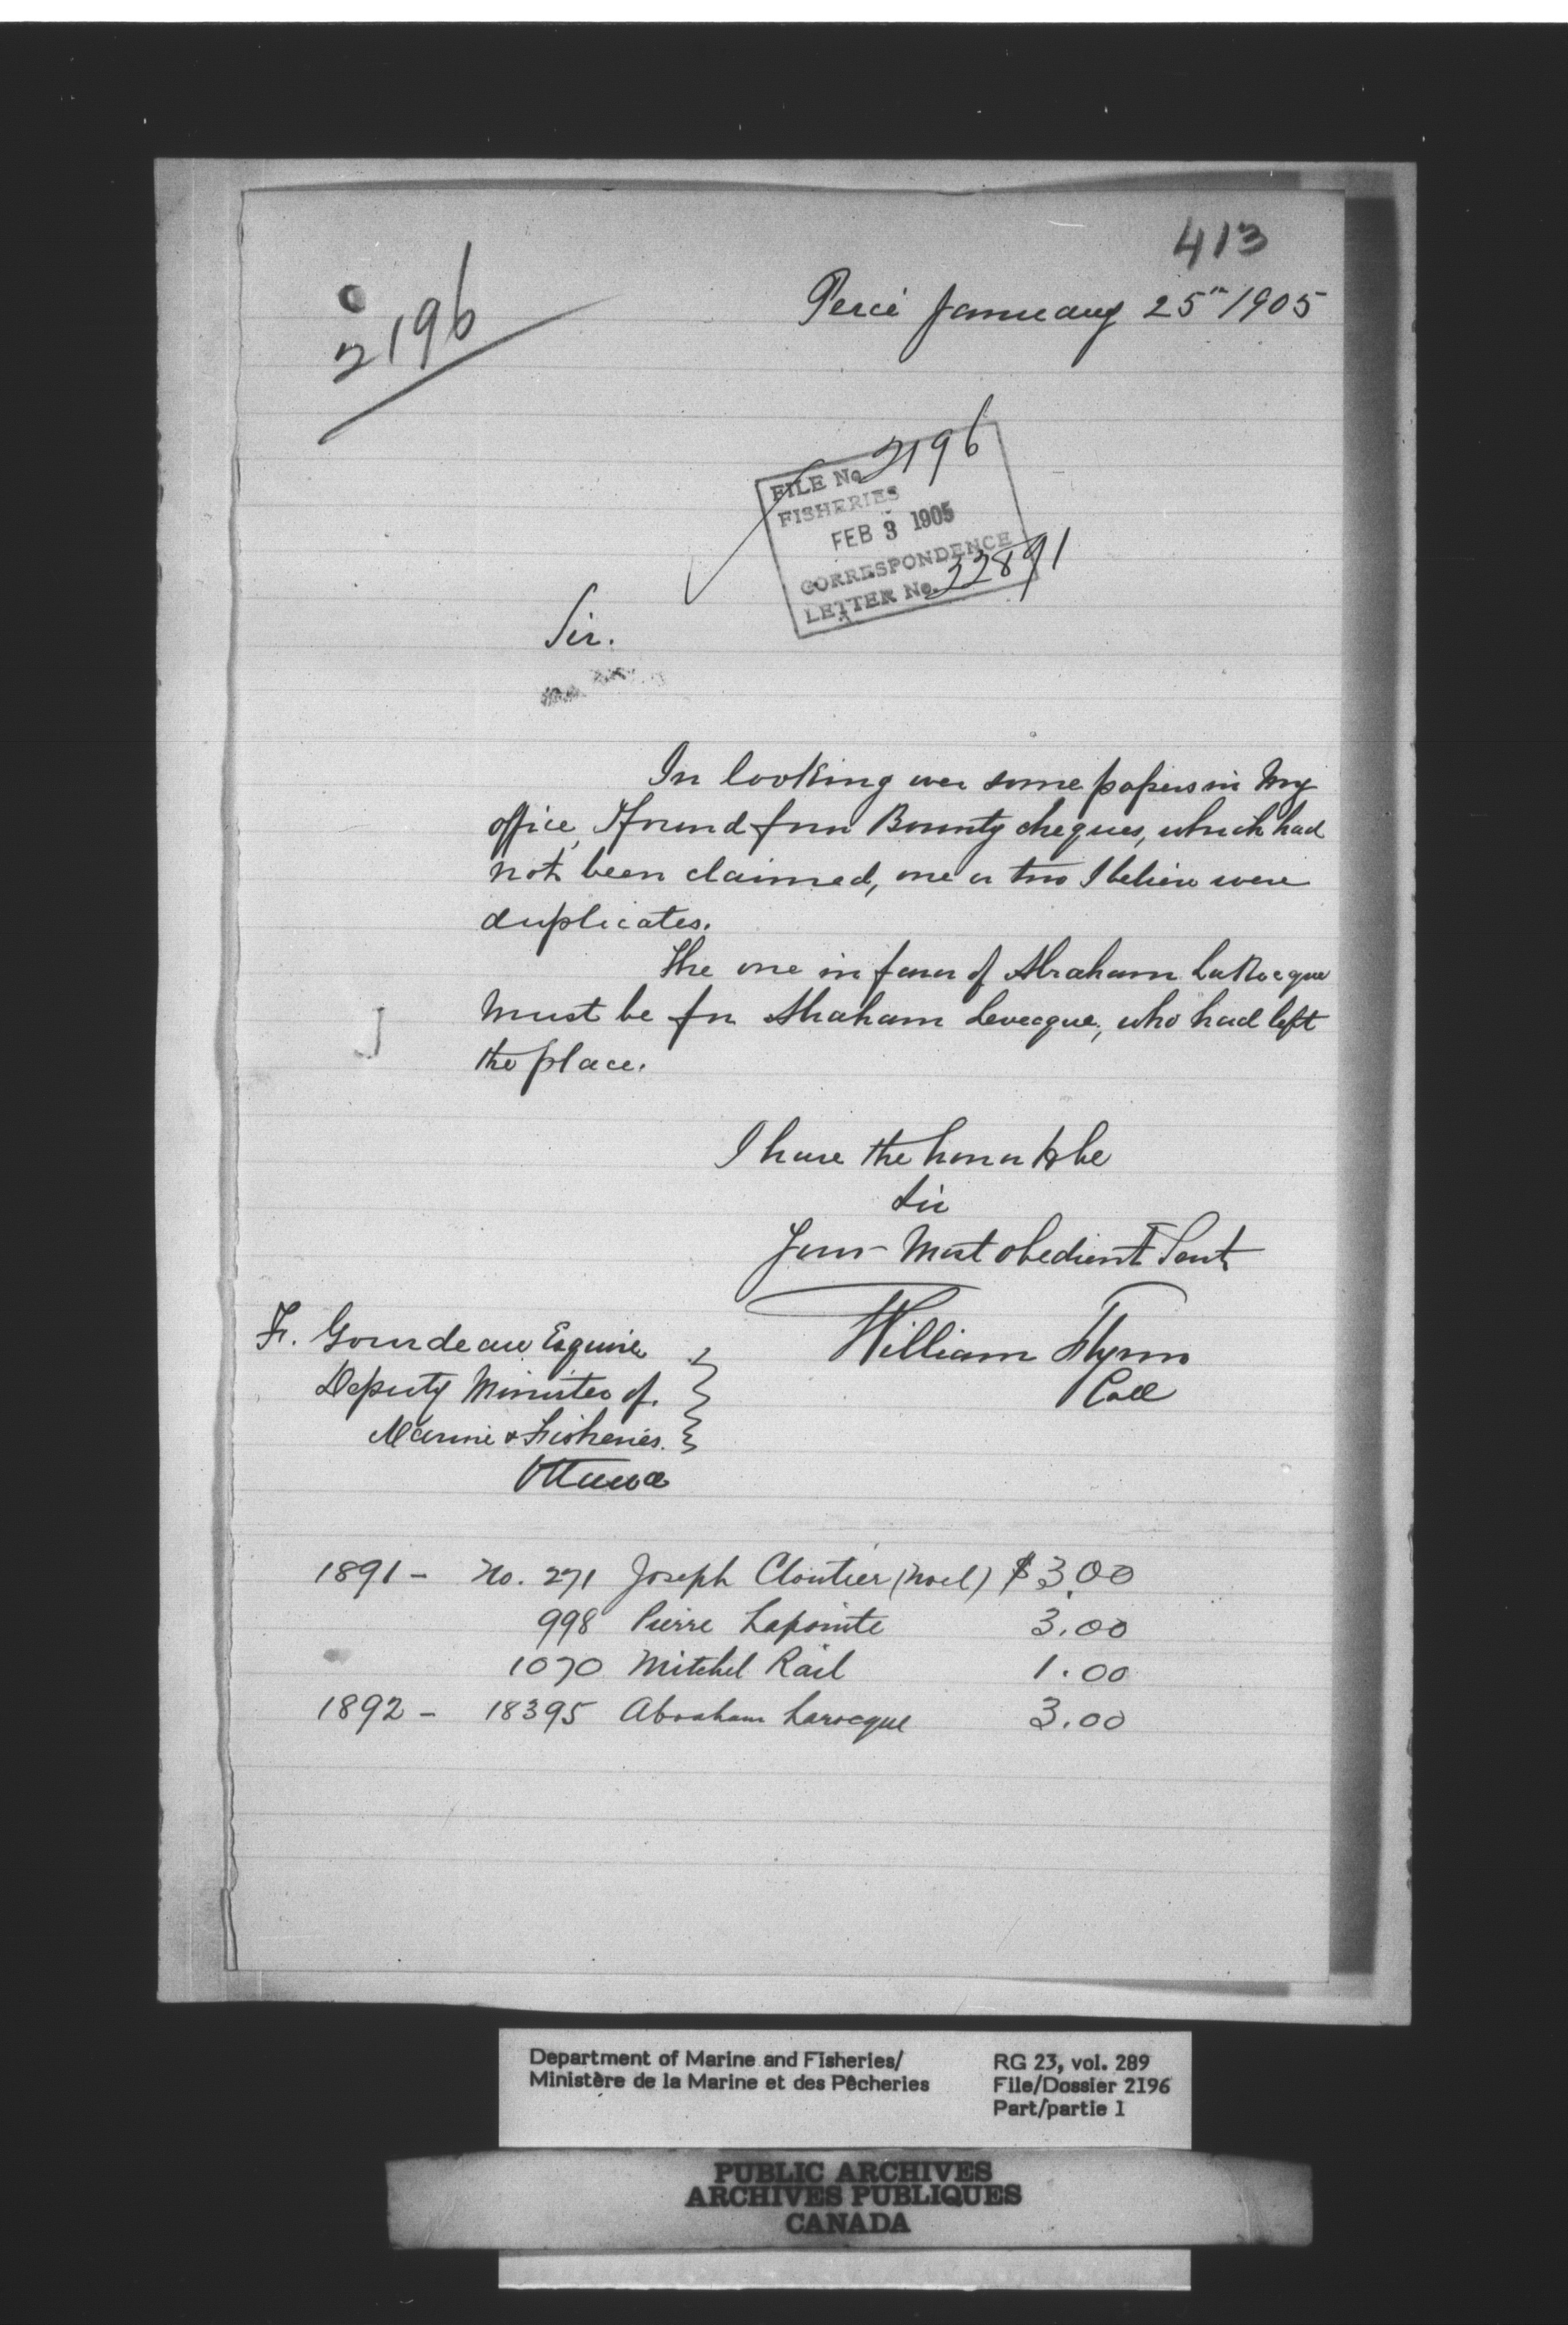 413
2196
Percé January 25th 1905
FILE No. 2196
FISHERIES
FEB 3 1905
CORRESPONDENCE
LETTER No. 32891
Sir.
In looking over some papers in my
office, I found four Bounty cheques, which had
not been claimed, one or two I believe were
duplicates.
The one in favor of Abraham LaRocque
must be for Abraham Levecque, who had left
the place.
I have the honor to be
Sir
Your Most obedient Servt
William Flynn
Coll
F. Gourdeau Esquire
Deputy Minister of
Marine & Fisheries.
Ottawa
1891 - No. 271 Joseph Cloutier (Noel) $3.00
998 Pierre Lapointe 3.00
1070 Mitchel Rail 1.00
1892 - 18395 Abraham Larocque 3.00
Department of Marine and Fisheries/
Ministère de la Marine et des Pêcheries
RG 23, vol. 289
File/Dossier 2196
Part/partie 1
PUBLIC ARCHIVES
ARCHIVES PUBLIQUES
CANADA